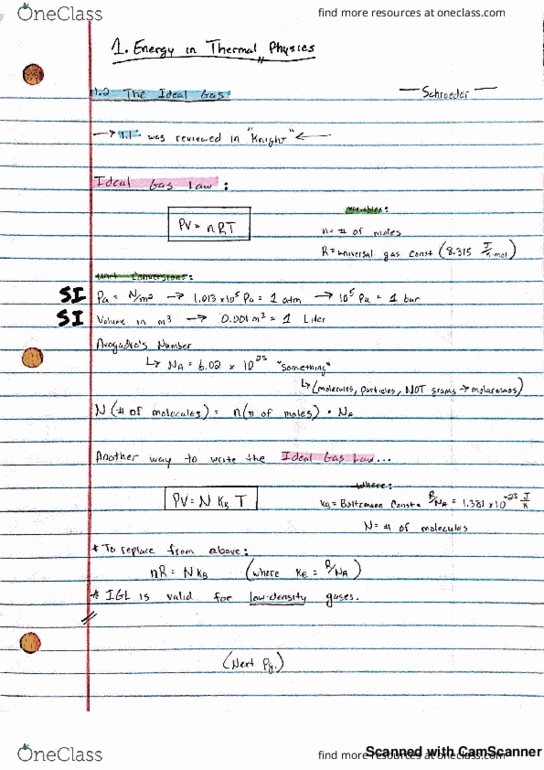 OneClass
find more resources at oneclass.com
1. Energy in Thermal Physics
1.2 The Ideal Gas
— Schroeder —
→ 1.1 was reviewed in "Knight" ←
Ideal Gas Law:
Variables:
PV = nRT
n = # of moles
R = universal gas const (8.315 J/K·mol)
Unit Conversions:
SI Pa = N/m² → 1.013 x 10⁵ Pa = 1 atm → 10⁵ Pa = 1 bar
SI Volume in m³ → 0.001 m³ = 1 Liter
Avogadro's Number
↳ NA = 6.02 x 10²³ "something"
↳ (molecules, particles, NOT grams → molarmass)
N (# of molecules) = n (# of moles) · NA
Another way to write the Ideal Gas Law...
Where:
PV = N KB T
KB = Boltzmann Const = R/NA = 1.381 x 10⁻²³ J/K
N = # of molecules
* To replace from above:
nR = N KB (where KB = R/NA)
* IGL is valid for low-density gases.
(Next Pg.)
OneClass
find more resources at oneclass.com
Scanned with CamScanner